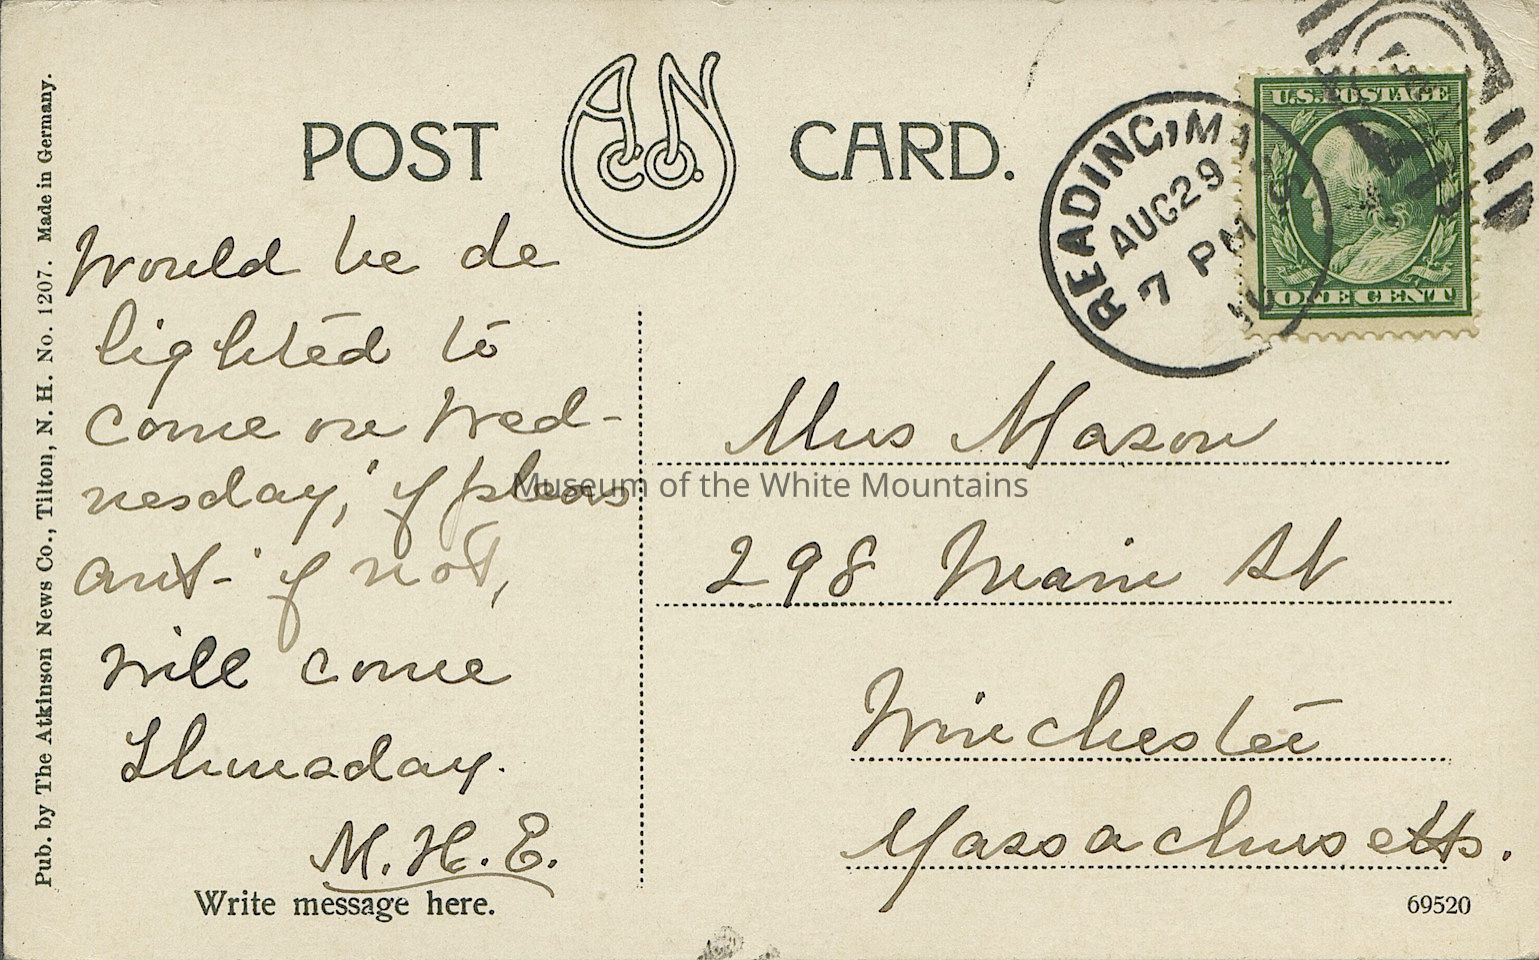 POST CARD.
A N Co.
READING, MA
AUG 29
7 PM
U.S. POSTAGE
ONE CENT
Would be de
lighted to
come on Wed-
nesday, if pleas
ant- if not,
will come
Thursday.
M. H. E.
Write message here.
Miss Mason
298 Main St
Winchester
Massachusetts.
69520
Pub. by The Atkinson News Co., Tilton, N. H. No. 1207. Made in Germany.
Museum of the White Mountains